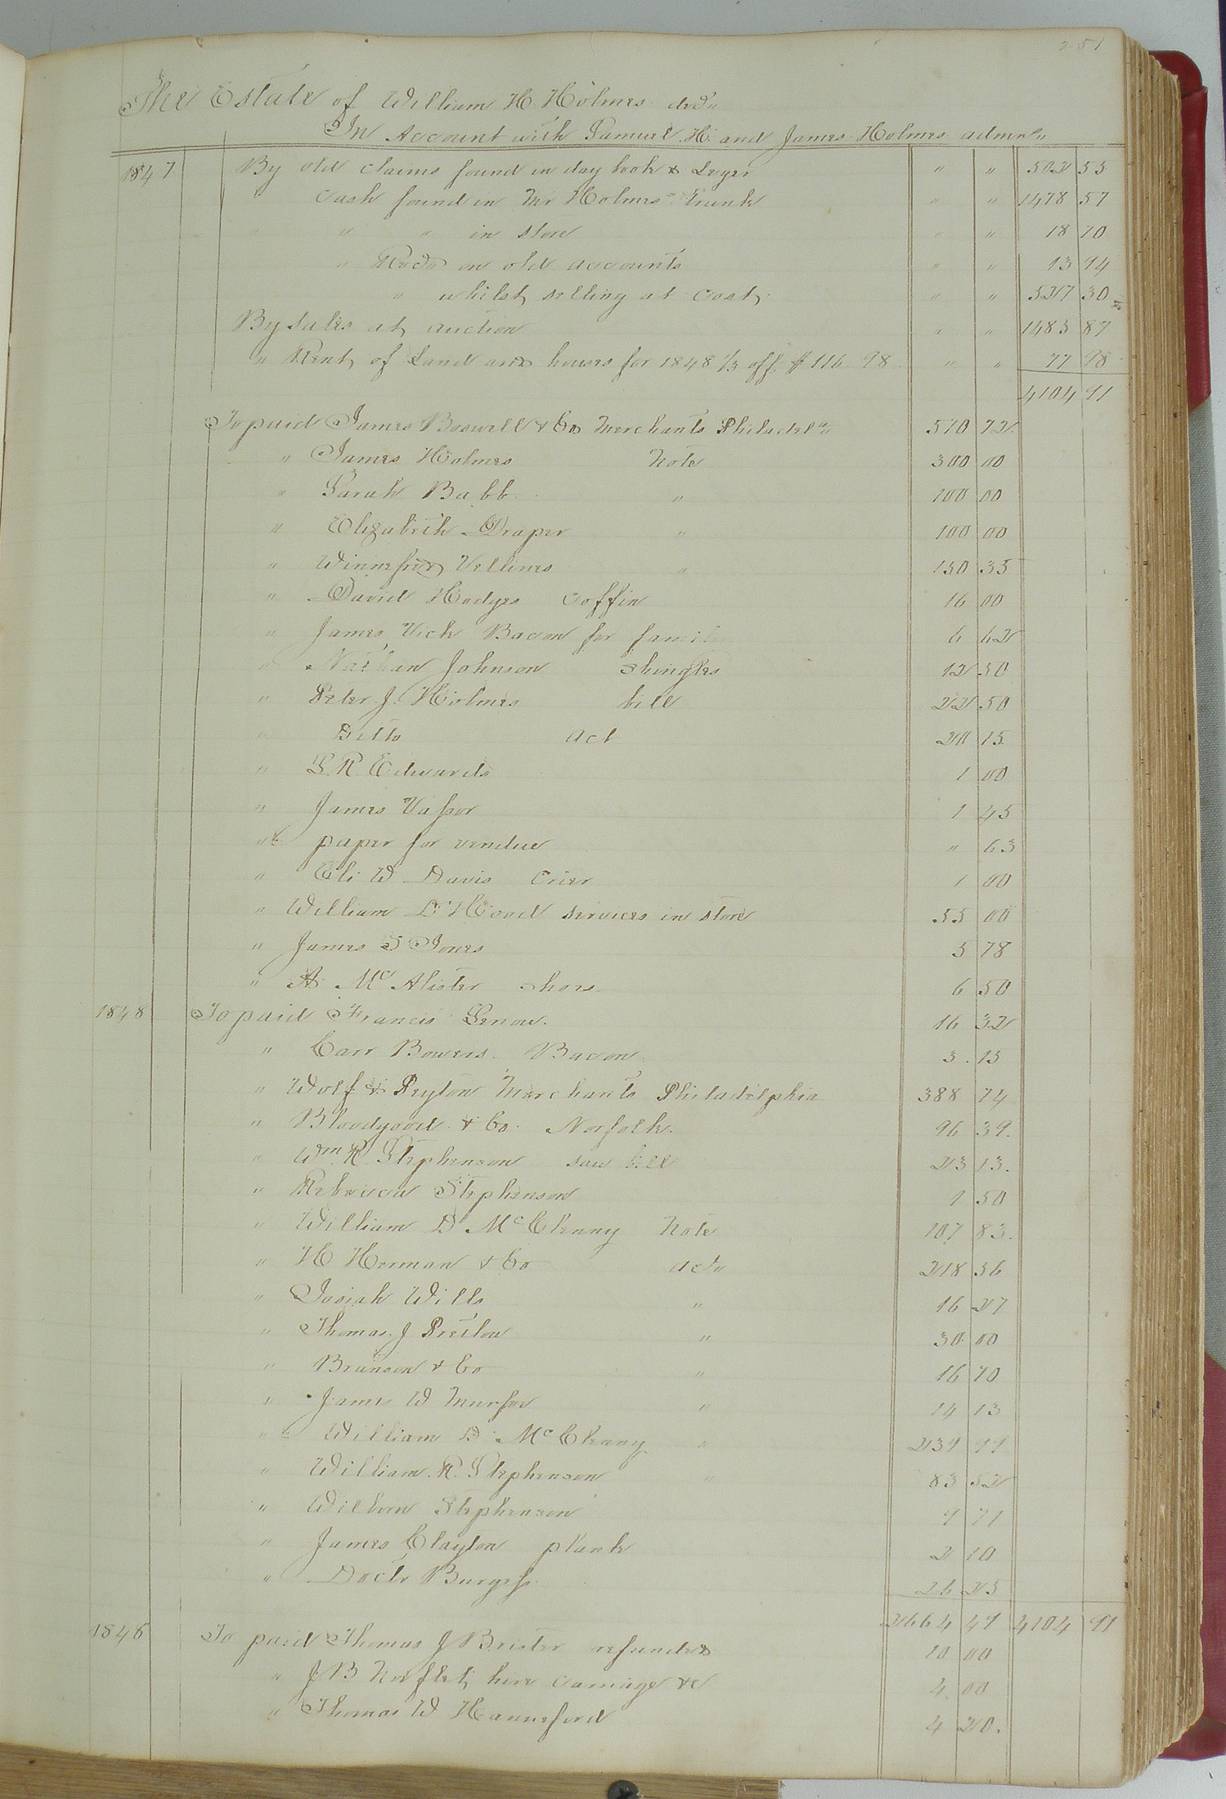 251
The Estate of William H. Holmes decd
In Account with Samuel H. and James Holmes admrs
1847 By old claims found in day book & Leger " " 502 55
Cash found in Mr Holmes Trunk " " 1478 57
" " " in store " " 18 70
" Recd on old accounts " " 13 94
" whilst selling at cost " " 527 30
By sales at auction " " 1485 87
" Rent of Land and houses for 1848 1/3 off $116.98 " " 77 98
4104 91
To paid James Boswell & Co Merchants Philadela 570 72
" James Holmes Note 300 00
" Sarah Babb " 100 00
" Elizabeth Draper " 100 00
" Winnefred Vellines " 150 35
" David Hodges Coffin 16 00
" James Vick Bacon for family 6 62
" Nathan Johnson Shingles 12 50
" Peter J. Holmes bill 22 50
" Ditto act 20 15
" S. R. Edwards 1 00
" James Vasser 1 45
" paper for vendue " 63
" Eli W Davis Crier 1 00
" William D Hood services in store 55 00
" James S Jones 5 78
" A McAlister shoes 6 50
1848 To paid Francis 16 32
" Carr Bowers Bacon 3 15
" Wolf & Peyton Merchants Philadelphia 388 74
" Bloodgood & Co. Norfolk 96 39
" Wm R. Stephenson saw bill 23 13
" Rebecca Stephenson 1 50
" William D McClenny Note 107 83
" H Herman & Co act 218 56
" Josiah Wills " 16 27
" Thomas J Pretlow " 30 00
" Brunson & Co " 16 70
" James W Murfee " 14 13
" William D. McClenny " 239 99
" William R. Stephenson " 83 52
" Wilborn Stephenson 9 71
" James Clayton plank 2 10
" Doctr Burgess 26 25
2664 49 4104 91
1846 To paid Thomas J Brister refunded 10 00
" J B Norfleet hire Carriage &c 4 00
" Thomas W Hanneford 4 20